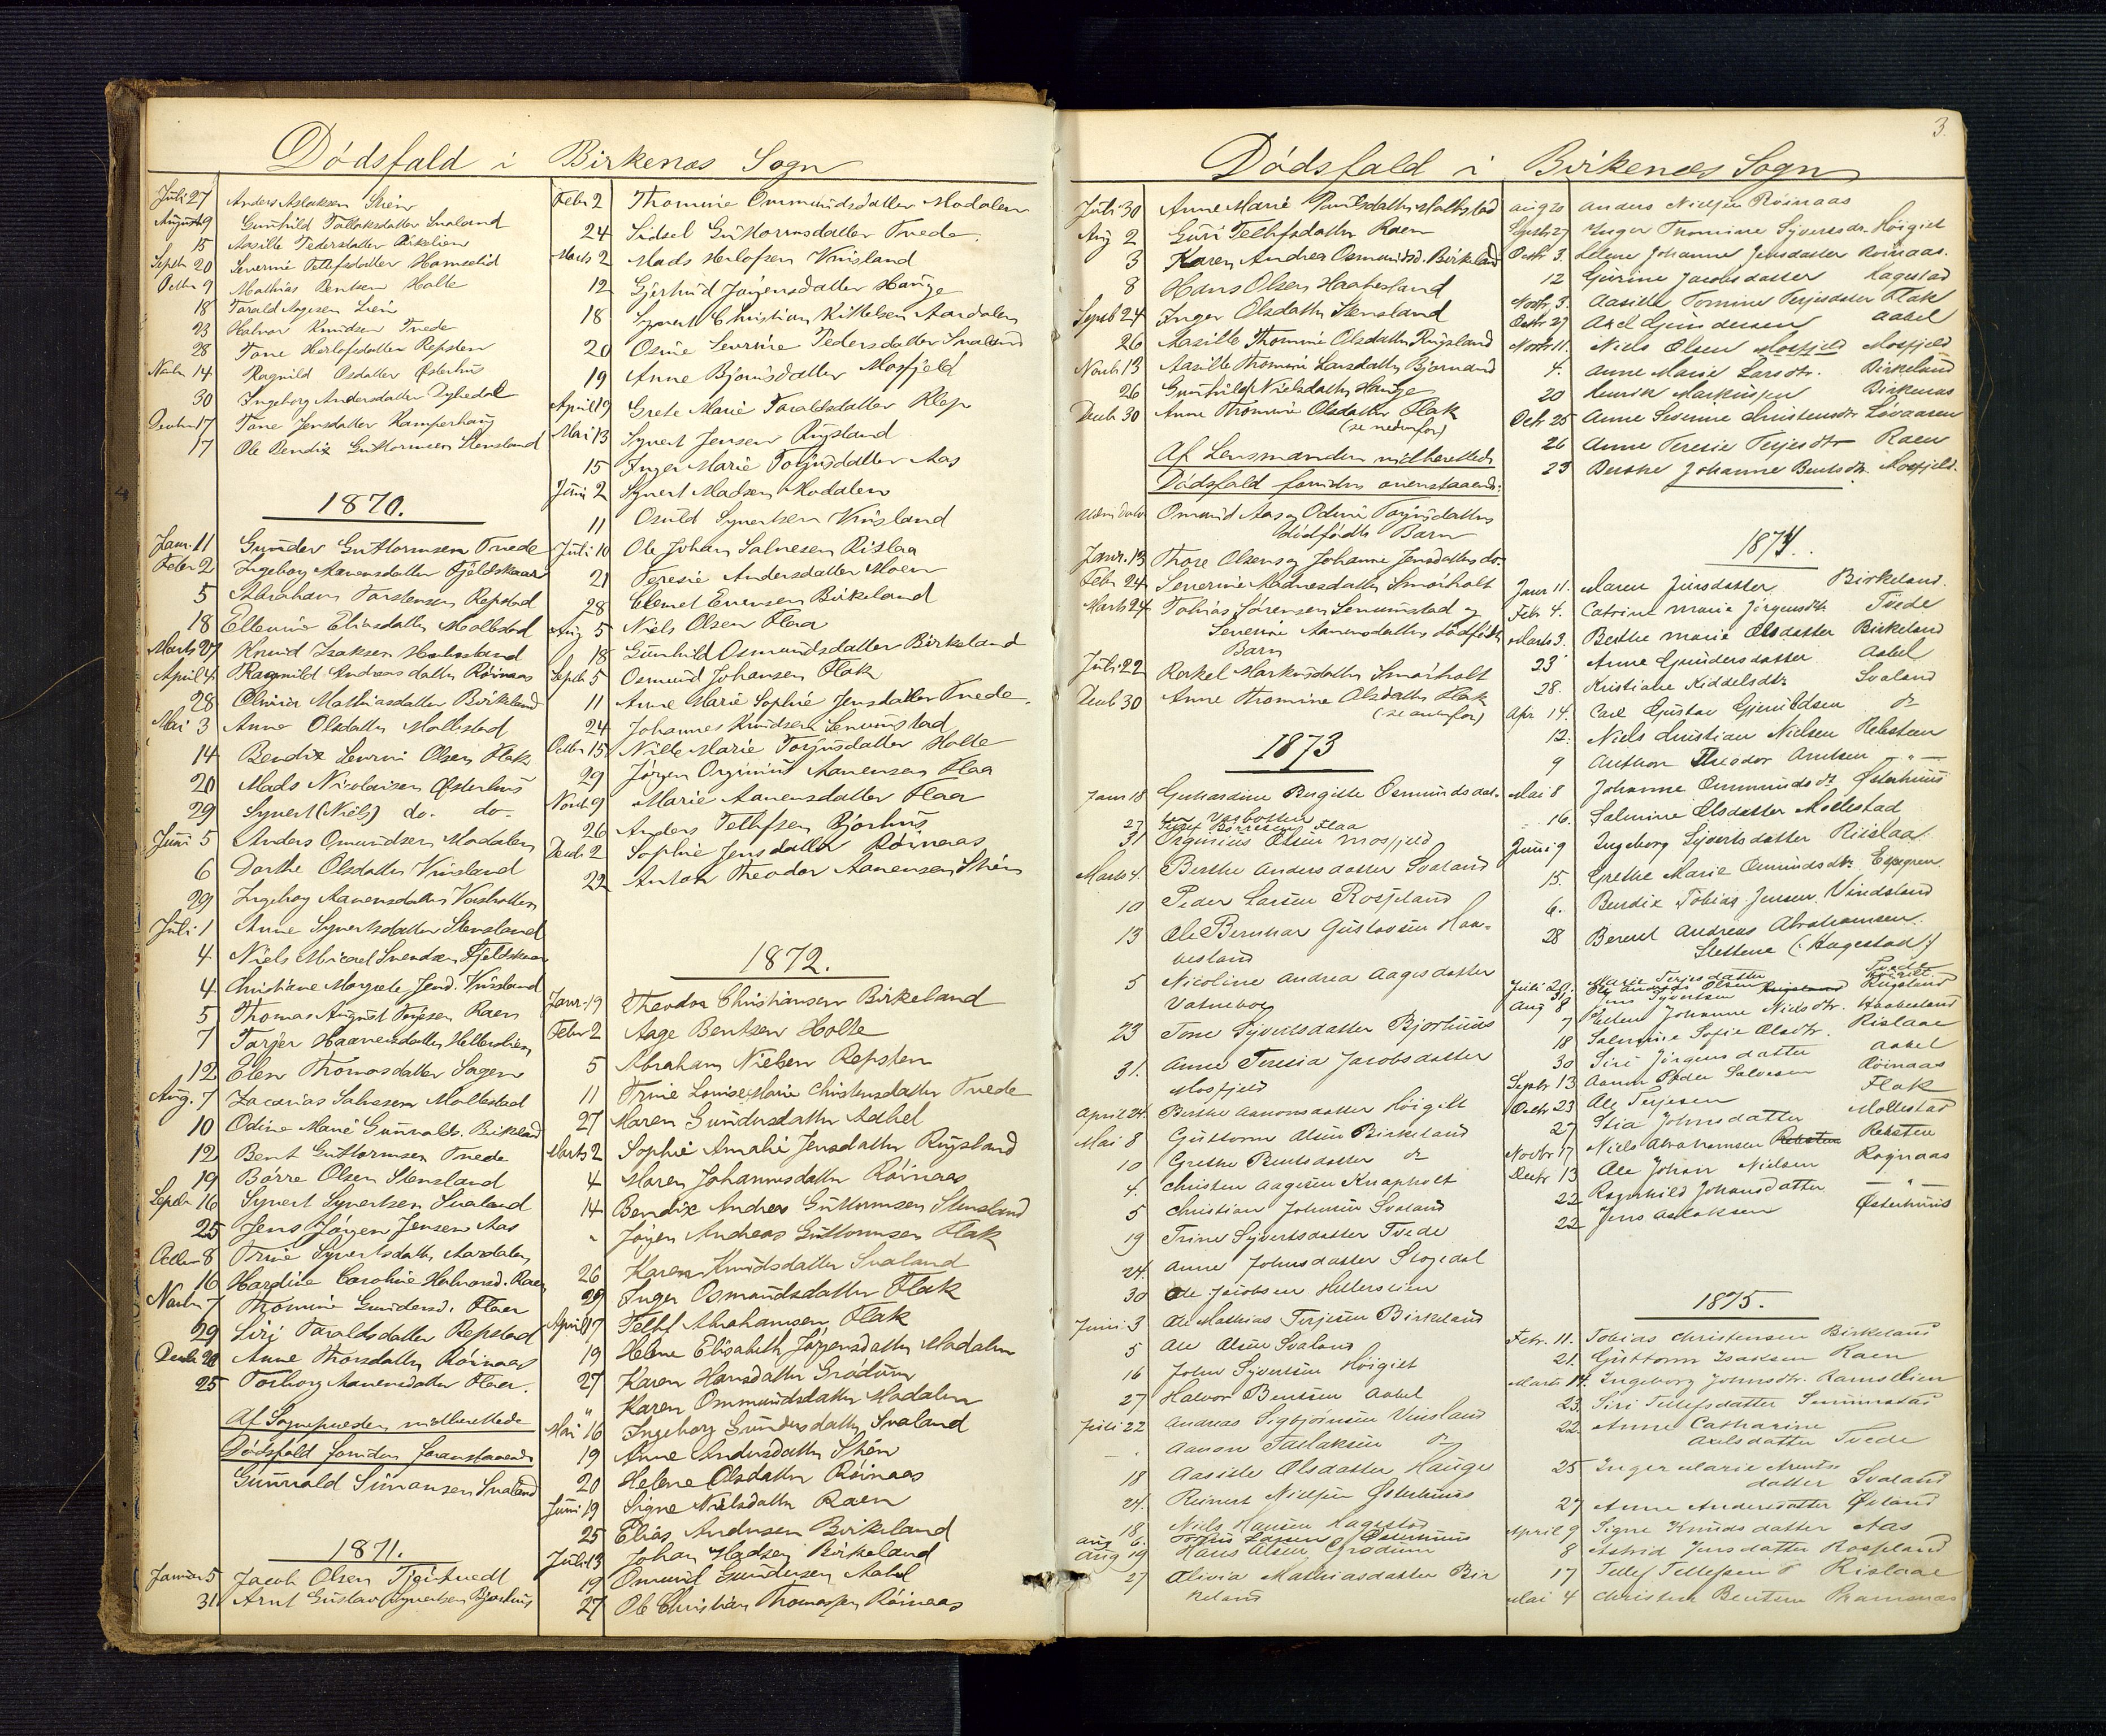 Dödsfald i Birkenæs Sogn
Juli 27 Anders Aslaksen Skien
August 9 Gunhild Tallaksdatter Svaland
15 Aasille Pedersdatter Birkelien
Septbr 20 Severine Tellefsdatter Hamselid
Octbr 9 Mathias Bentsen Holte
18 Tarald Aagesen Lien
23 Halvor Knudsen Tvede
28 Tone Herlofsdatter Repsten
Novbr 14 Ragnild Osdatter Østerhus
30 Ingeborg Andersdatter
Decbr 17 Tone Jensdatter Kamperhaug
17 Ole Bendix Guttormsen Stensland
1870.
Janr. 11 Gunder Guttormsen Tvede
Febr 2 Ingeborg Aanensdatter Fjeldskaar
5 Abraham Torstensen Repstad
18 Ellevine Eliasdatter Mollestad
Marts 27 Knud Isaksen Haabesland
April 4 Ragnild Andreasdatter Röinaas
28 Olivia Mathiasdatter Birkeland
Mai 3 Anne Olsdatter Mollestad
14 Bendix Severin Olsen Flak
20 Mads Nicolaisen Østerhus
29 Syvert (Niels) do. do.
Juni 5 Anders Omundsen Modalen
6 Dorthe Olsdatter Vinsland
29 Ingeborg Aanensdatter Vasbotten
Juli 1 Anne Syvertsdatter Stensland
4 Niels Micael Svendsen Fjeldskaar
4 Christiane Margrete Jensd. Vinsland
5 Thomas August Terjesen Raen
7 Tarjer Haavensdatter Hellerslien
12 Elen Thomasdatter Sagen
Aug. 7 Zacarias Salvesen Mollestad
10 Odine Marie Gunvalds. Birkeland
12 Bent Guttormsen Tvede
19 Börre Olsen Stensland
Septbr 16 Syvert Syvertsen Svaland
25 Jens Jörgen Jensen Aas
Octbr 8 Trine Syvertsdatter Aardalen
16 Hardine Caroline Halvorsd. Raen
Novbr 7 Thomine Gundersd. Flaa
29 Siri Taraldsdatter Repstad
Decbr 20 Anne Thorsdatter Röinaas
25 Torborg Aanensdatter Flaa.
Af Sognepresten indberettede
Dödsfald foruden foranstaaende
Gunvald Simonsen Svaland
1871.
Januar 5 Jacob Olsen Tjörtvedt
31. Arnt Gustav Syvertsen Bjorhus
Febr 2 Thomine Ommundsdatter Modalen
24 Sidsel Guttormsdatter Tvede.
Marts 2 Mads Herlofsen Vinsland
12 Gjertrud Jörgensdatter Hauge
18 Syvert Christian Kittelsen Aardalen
20 Osine Severine Pedersdatter Svaland
19 Anne Bjornsdatter Mosfjeld
April 19 Grete Marie Taraldsdatter Klep
Mai 13 Syvert Jensen Rugsland
15 Inger Marie Torjusdatter Aas
Juni 2 Syvert Madsen Modalen
11 Osuld Syvertsen Vinsland
Juli 10 Ole Johan Salvesen Rislaa
21 Teresie Andersdatter Moen
28 Clemet Evensen Birkeland
Aug 5 Niels Olsen Flaa
18 Gunhild Osmundsdatter Birkeland
Septb 5 Osmund Johansen Flak
11 Anne Marie Sophie Jensdatter Tvede.
24 Johannes Knudsen Senumstad
Octbr 15 Nille Marie Torjusdatter Holte
29 Jörgen Orginius Aanensen Flaa
Novb 9 Marie Aanensdatter Flaa
26 Anders Tellefsen Bjorhus
Decb 2 Sophie Jensdatter Röinaas
22 Anton Theodor Aanensen Skien
1872.
Janr. 19 Theodor Christiansen Birkeland
Febr 2 Aage Bentsen Holte
5 Abraham Nielsen Repsten
11 Trine Louise Marie Christensdatter Tvede
27 Maren Gundersdatter Aabel
Marts 2 Sophie Amalie Jensdatter Rugsland
4 Maren Johannesdatter Röinaas
14 Bendix Andreas Guttormsen Stensland
" Jörgen Andreas Guttormsen Flak
26 Karen Knudsdatter Svaland
29 Inger Osmundsdatter Flak
April 17 Tellef Abrahamsen Flak
19 Helene Elisabeth Jörgensdatter Modalen
27 Karen Hansdatter Grödum
" Karen Ommundsdatter Modalen
Mai 16 Ingeborg Gundersdatter Svaland
19 Anne Andersdatter Skien
20 Helene Olsdatter Röinaas
Juni 19 Signe Nielsdatter Raen
25 Elias Andersen Birkeland
Juli 13 Johan Madsen Birkeland
19 Omund Gundersen Aabel
27 Ole Christian Thomassen Röinaas
3.
Dödsfald i Birkenæs Sogn
Juli 30 Anne Marie Mollestad
Aug 2 Guri Tellefsdatter Raen
3 Karen Andrea Osmundsd. Birkeland
8 Hans Olsen Haabesland
Septb 24 Inger Olsdatter Stensland
26 Aasille Thomine Olsdatter Rugsland
Novb 13 Aasille Thomine Larsdatter Bjormand
26 Gunhild Nielsdatter Hauge
Decb 30 Anne Thomine Olsdatter Flak
(se nedenfor)
Af Lensmanden indberettede
Dödsfald foruden ovenstaaende:
Uden dato Omund Aas og Odine Torjusdatters
dödfödte Barn
Janr. 13 Thore Olsens og Johanne Jensdatters do.
Febr 24 Severine Madnesdatter Smörholt
Marts 24 Tobias Sörensen Senumstad og
Severine Aanensdatters dödfödte
Barn
Juli 22 Rakel Markusdatter Smörholt
Decb 30 Anne Thomine Olsdatter Flak
(se ovenfor)
1873
Janr 18 Gerhardine Birgitte Osmundsdat-
ter Vasbotten
27 Börresen Flaa
31 Orginius Olsen Mosfjeld
Marts 4. Berthe Andersdatter Svaland
10 Peder Larsen Rosseland
13 Ole Bernhar Gustavsen Haa-
besland
5 Nicoline Andrea Aagesdatter
Vatneborg
23 Tone Syvertsdatter Bjorhuus
31. Anne Teresia Jacobsdatter
Mosfjeld
April 24. Berthe Aanonsdatter Höigilt
Mai 8 Guttorm Olsen Birkeland
10 Grethe Bentsdatter do
4. Christen Aagesen Knapholt
5 Christian Johnsen Svaland
19 Trine Syvertsdatter Tvede
24. Anne Johnsdatter Stogedal
30 Ole Jacobsen Hellerslien
Juni 3 Ole Mathias Terjesen Birkeland
5 Ole Olsen Svaland
16 John Syvertsen Höigilt
27 Halvor Bentsen Aabel
Juli 22 Andreas Sigbjörnsen Vinsland
Aanon Tallaksen do
18 Aasille Olsdatter Hauge
24 Reinert Nielsen Østerhuus
18 Niels Hansen Hagestad
Aug 6. Larsen Østerhuus
Aug 19 Hans Olsen Grödum
27 Olivia Mathiasdatter Bir
keland
Aug 20 Anders Nielsen Röinaas
Septb 27 Inger Thomine Syvertsdr. Höigilt
Octb 3. Helene Johanne Jensdatter Röinaas.
12 Gurine Jacobsdatter Hagestad
Novbr 3. Aasille Tomine Terjesdatter Flak
Octbr 27 Axel Gundersen Aabel
Novbr 11. Niels Olsen Mosfjeld Mosfjeld
4. Anne Marie Larsdtr. Birkeland
20 Henrik Markussen Birkenæs
Octb 25 Anne Severine Christensdtr Lövaasen
26 Anne Teresie Terjesdtr Raen
23 Berthe Johanne Bentsdtr. Mosfjeld.
1874.
Janr 11. Maren Jensdatter Birkeland.
Febr 4. Catrine Marie Jörgensdtr Tvede
Marts 3. Berthe Marie Olsdatter Birkeland
23 Anne Gundersdatter Aabel
28. Kristiane Kiddelsdtr Svaland
Apr 14. Carl Gustav Gjeruldsen do
12. Niels Kristian Nielsen Rebsteen
9 Anthon Theodor Arntsen — " —
Mai 8 Johanne Ommundsdtr Østerhuus
16. Salmine Olsdatter Mollestad
Juni 9 Ingeborg Syvertsdatter Rislaa
15. Grethe Marie Osmundsdtr. Espegren
6. Bendix Tobias Jensen Vindsland
28 Berent Andreas Abrahamsen
Slettene (Hagestad)
Juli 20. Marie Terjesdatter Tvede
31 Olsen
Aug 8 Jens Syvertsen Rugsland
7 Ellen Johanne Nielsdtr. Haabesland
18 Salmine Sofie Olsdtr. Rislaae
30 Siri Jörgensdatter Aabel
Septr 13 Aanon Peder Salvesen Röinaas
Octbr 23 Ole Terjesen Flak
27 Stia Johnsdatter Mollestad
Novbr 17 Niels Abrahamsen Rebsten Rebsten
Decbr 13 Ole Johan Nielsen Röinaas
22 Ragnhild Johansdatter — " —
22 Jens Aslaksen Østerhuus
1875.
Febr. 11. Tobias Christensen Birkeland
21. Guttorm Isaksen Raen
Marts 14. Ingeborg Johnsdtr. Ramslien
23. Siri Tellefsdatter Senumstad
22. Anne Catharine
Axelsdatter Tvede
25 Inger Marie Arents
datter Svaland
27 Anne Andersdatter Øiland
April 9 Signe Knudsdatter Aas
8 Astrid Jensdatter Rosseland
17 Tellef Tellefsen Rislaae
Mai 4 Christen Bentsen